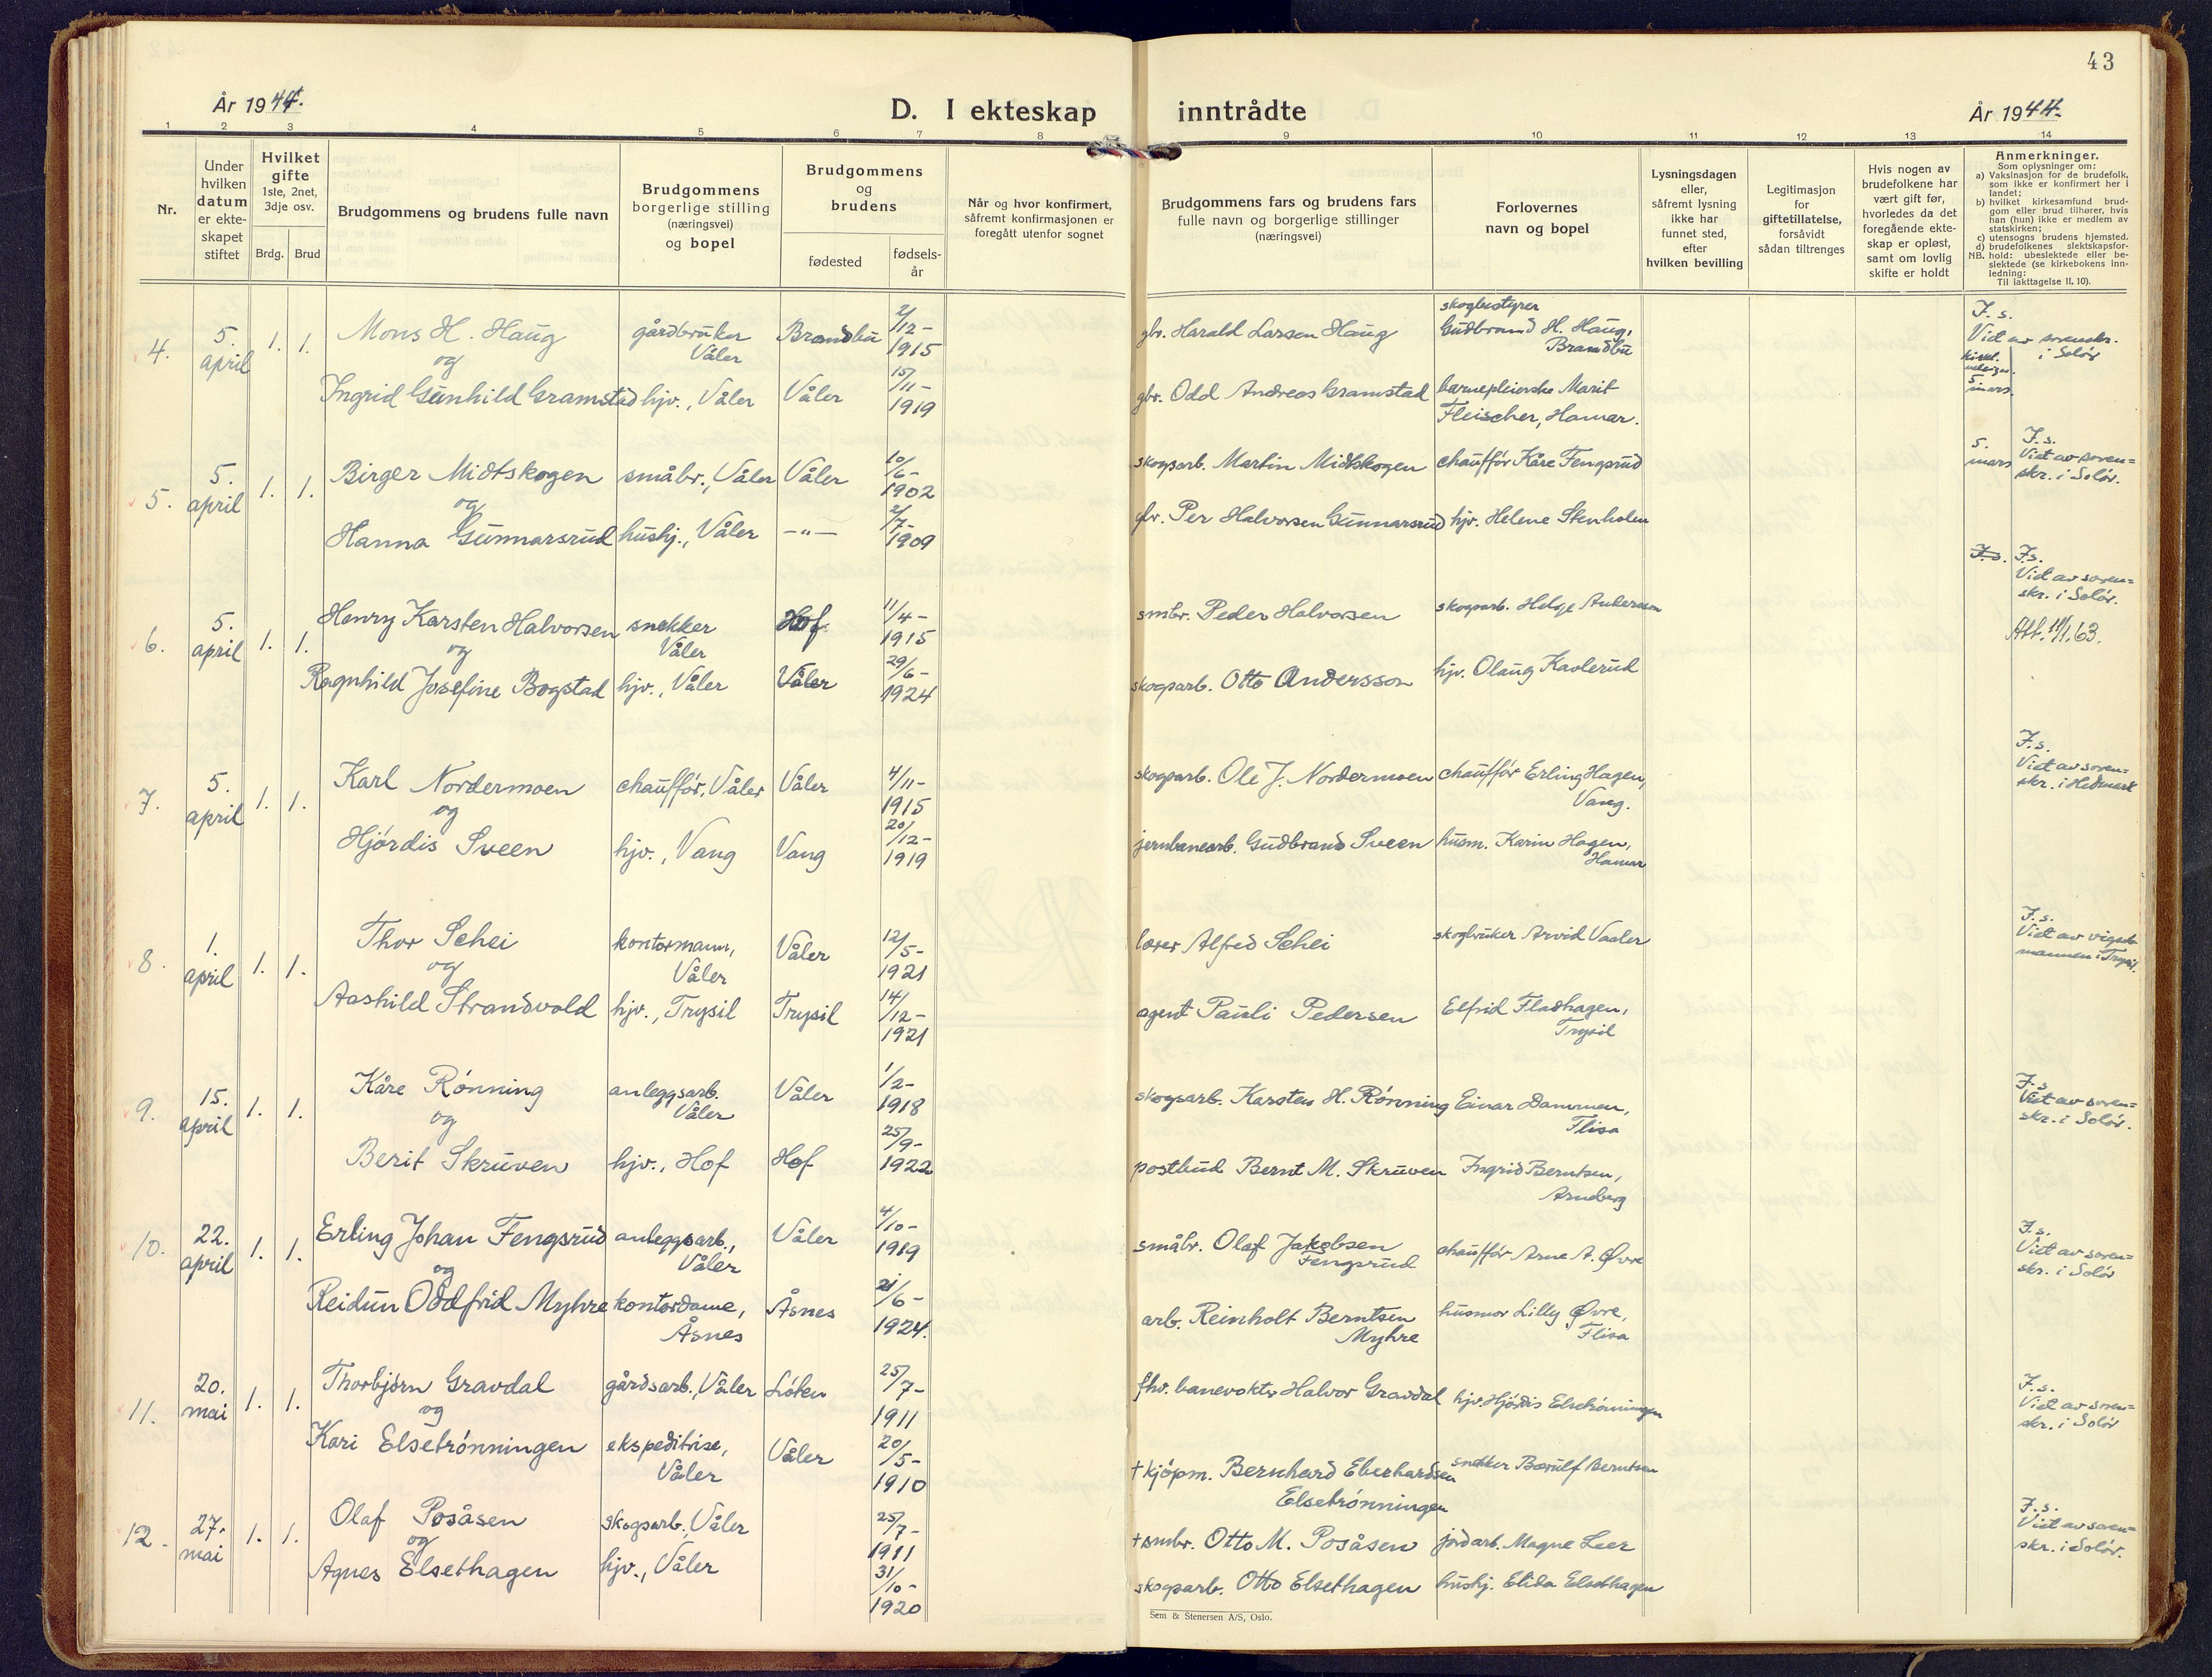 43
År 1944.
D. I ekteskap inntrådte
År 1944.
1 2 3 4 5 6 7 8 9 10 11 12 13 14
Nr.
Under
hvilken
datum
er ekte-
skapet
stiftet
Hvilket
gifte
1ste, 2net,
3dje osv.
Brdg. Brud
Brudgommens og brudens fulle navn
Brudgommens
borgerlige stilling
(næringsvei)
og bopel
Brudgommens
og
brudens
fødested
fødsels-
år
Når og hvor konfirmert,
såfremt konfirmasjonen er
foregått utenfor sognet
Brudgommens fars og brudens fars
fulle navn og borgerlige stillinger
(næringsvei)
Forlovernes
navn og bopel
Lysningsdagen
eller,
såfremt lysning
ikke har
funnet sted,
efter
hvilken bevilling
Legitimasjon
for
giftetillatelse,
forsåvidt
sådan tiltrenges
Hvis nogen av
brudefolkene har
vært gift før,
hvorledes da det
foregående ekte-
skap er opløst,
samt om lovlig
skifte er holdt
Anmerkninger.
Som oplysninger om:
a) Vaksinasjon for de brudefolk,
som ikke er konfirmert her i
landet;
b) hvilket kirkesamfund brud-
gom eller brud tilhører, hvis
han (hun) ikke er medlem av
statskirken;
c) utensogns brudens hjemsted.
d) brudefolkenes slektskapsfor-
NB. hold: ubeslektede eller be-
slektede (se kirkebokens inn-
ledning:
Til iakttagelse II, 10).
4. 5. april 1. 1.
Mons H. Haug
og
Ingrid Gunhild Gramstad
gårdbruker
Våler
hjv., Våler
Brandbu
Våler
2/12-
1915
15/11-
1919
gbr. Harald Larsen Haug
gbr. Odd Andreas Gramstad
skogbestyrer
Gudbrand H. Haug,
Brandbu
barnepleierske Marit
Fleischer, Hamar.
F. s.
Viet av sorenskr.
i Solør
5 mars
5. 5. april 1. 1.
Birger Midtskogen
og
Hanna Gunnarsrud
småbr., Våler
hushj., Våler
Våler
—"—
10/6-
1902
2/7-
1909
skogsarb. Martin Midtskogen
gbr. Per Halvorsen Gunnarsrud
chauffør Kåre Fengsrud
hjv. Helene Stenholen
5.
mars
F. s.
Viet av soren=
skr. i Solør.
6. 5. april 1. 1.
Henry Karsten Halvorsen
og
Ragnhild Josefine Bogstad
snekker
Våler
hjv., Våler
Hof
Våler
11/4-
1915
29/6-
1924
smbr. Peder Halvorsen
skogsarb. Otto Andersson
skogsarb. Helge Andersson
hjv. Olaug Kavlerud
F. s. F. s.
Viet av soren=
skr. i Solør.
Att. 11/1. 63.
7. 5. april 1. 1.
Karl Nordermoen
og
Hjørdis Sveen
chauffør, Våler
hjv., Vang
Våler
Vang
4/11-
1915
20/12-
1919
skogsarb. Ole J. Nordermoen
jernbanearb. Gudbrand Sveen
chauffør Erling Hagen,
Vang.
husm. Karin Hagen,
Hamar
F. s.
Viet av soren=
skr. i Hedmark
8. 1. april 1. 1.
Thor Schei
og
Aashild Strandvold
kontormann,
Våler
hjv., Trysil
Våler
Trysil
12/5-
1921
14/12-
1921
lærer Alfred Schei
agent Pauli Pedersen
skogbruker Arvid Vaaler
Elfrid Fladhagen,
Trysil
F. s.
Viet av vigsels
mannen i Trysil.
9. 15. april 1. 1.
Kåre Rønning
og
Berit Skruven
anleggsarb.
Våler
hjv., Hof
Våler
Hof
1/2-
1918
25/9-
1922
skogsarb. Karsten H. Rønning
postbud Bernt M. Skruven
Einar Dammen,
Flisa
Ingrid Berntsen,
Arneberg
F. s.
Viet av soren=
skr. i Solør.
10. 22. april 1. 1.
Erling Johan Fengsrud
og
Reidun Oddfrid Myhre
anleggsarb.,
Våler
kontordame,
Åsnes
Våler
Åsnes
4/10-
1919
21/6-
1924.
småbr. Olaf Jakobsen
Fengsrud
arb. Reinholt Berntsen
Myhre
chauffør Arne A. Øvre
husmor Lilly Øvre,
Flisa
F. s.
Viet av soren=
skr. i Solør
11. 20. mai 1. 1.
Thorbjørn Gravdal
og
Kari Elsetrønningen
gårdsarb., Våler
ekspeditrise,
Våler
Løten
Våler
25/7-
1911
20/5-
1910
fhv. banevokter Halvor Gravdal
+ kjøpm. Bernhard Eberhardsen
Elsetrønningen
hjv. Hjørdis Elsetrønningen
snekker Bærulf Berntsen
F. s.
Viet av soren=
skr. i Solør
12. 27. mai 1. 1.
Olaf Posåsen
og
Agnes Elsethagen
skogsarb., Våler
hjv., Våler
25/7-
1911
31/10-
1920
+ smbr. Otto M. Posåsen
skogsarb. Otto Elsethagen
jordarb. Magne Leer
hushj. Elida Elsethagen
F. s.
Viet av soren=
skr. i Solør.
Sem & Stenersen A/S, Oslo.